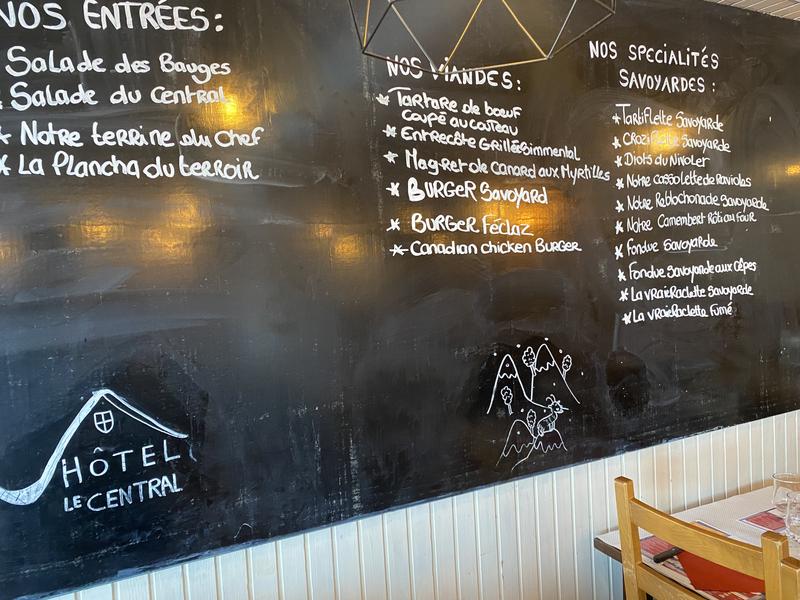 NOS ENTRÉES:
Salade des Bauges
Salade du Central
* Notre terrine du chef
* La Plancha du terroir
NOS VIANDES:
* Tartare de boeuf
coupé au couteau
* Entrecôte Grillée Simmental
* Magret de Canard aux Myrtilles
* BURGER Savoyard
* BURGER Féclaz
* Canadian chicken BURGER
NOS SPECIALITÉS
SAVOYARDES:
* Tartiflette Savoyarde
* Croziflette Savoyarde
* Diots du Nivolet
* Notre cassolette de Ravioles
* Notre Reblochonade Savoyarde
* Notre Camembert Rôti au Four
* Fondue Savoyarde
* Fondue Savoyarde aux Cêpes
* La vraie Raclette Savoyarde
* La vraie Raclette Fumé
HÔTEL
LE CENTRAL